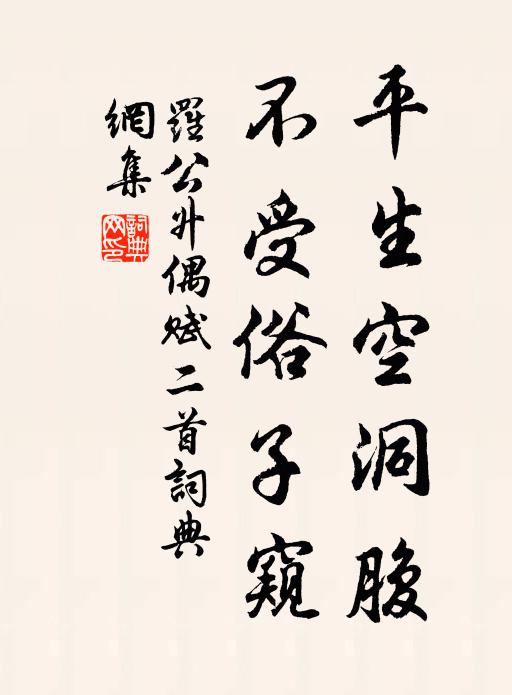 平生空洞腹
不受俗子窺
羅公升偶賦二首詞典
網集
詞典網印